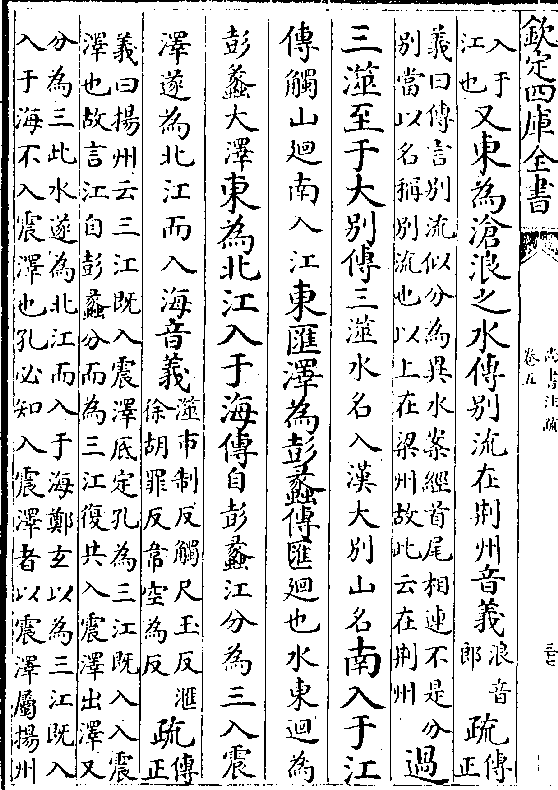 欽定四庫全書
尚書注疏
卷五
入于
江也
又東為滄浪之水傳別流在荆州音義
浪音
郎
疏
傳
正
義曰傳言別流似分為異水案經首尾相連不是分
別當以名稱別流也以上在梁州故此云在荆州
過
三澨至于大別傳三澨水名入漢大別山名南入于江
傳觸山廻南入江東匯澤為彭蠡傳匯廻也水東廻為
彭蠡大澤東為北江入于海傳自彭蠡江分為三入震
澤遂為北江而入海音義
澨市制反觸尺玉反滙
徐胡罪反常空為反
疏
傳
正
義曰揚州云三江既入震澤底定孔為三江既入入震
澤也故言江自彭蠡分而為三江復共入震澤出澤又
分為三此水遂為北江而入于海鄭玄以為三江既入
入于海不入震澤也孔必知入震澤者以震澤屬揚州